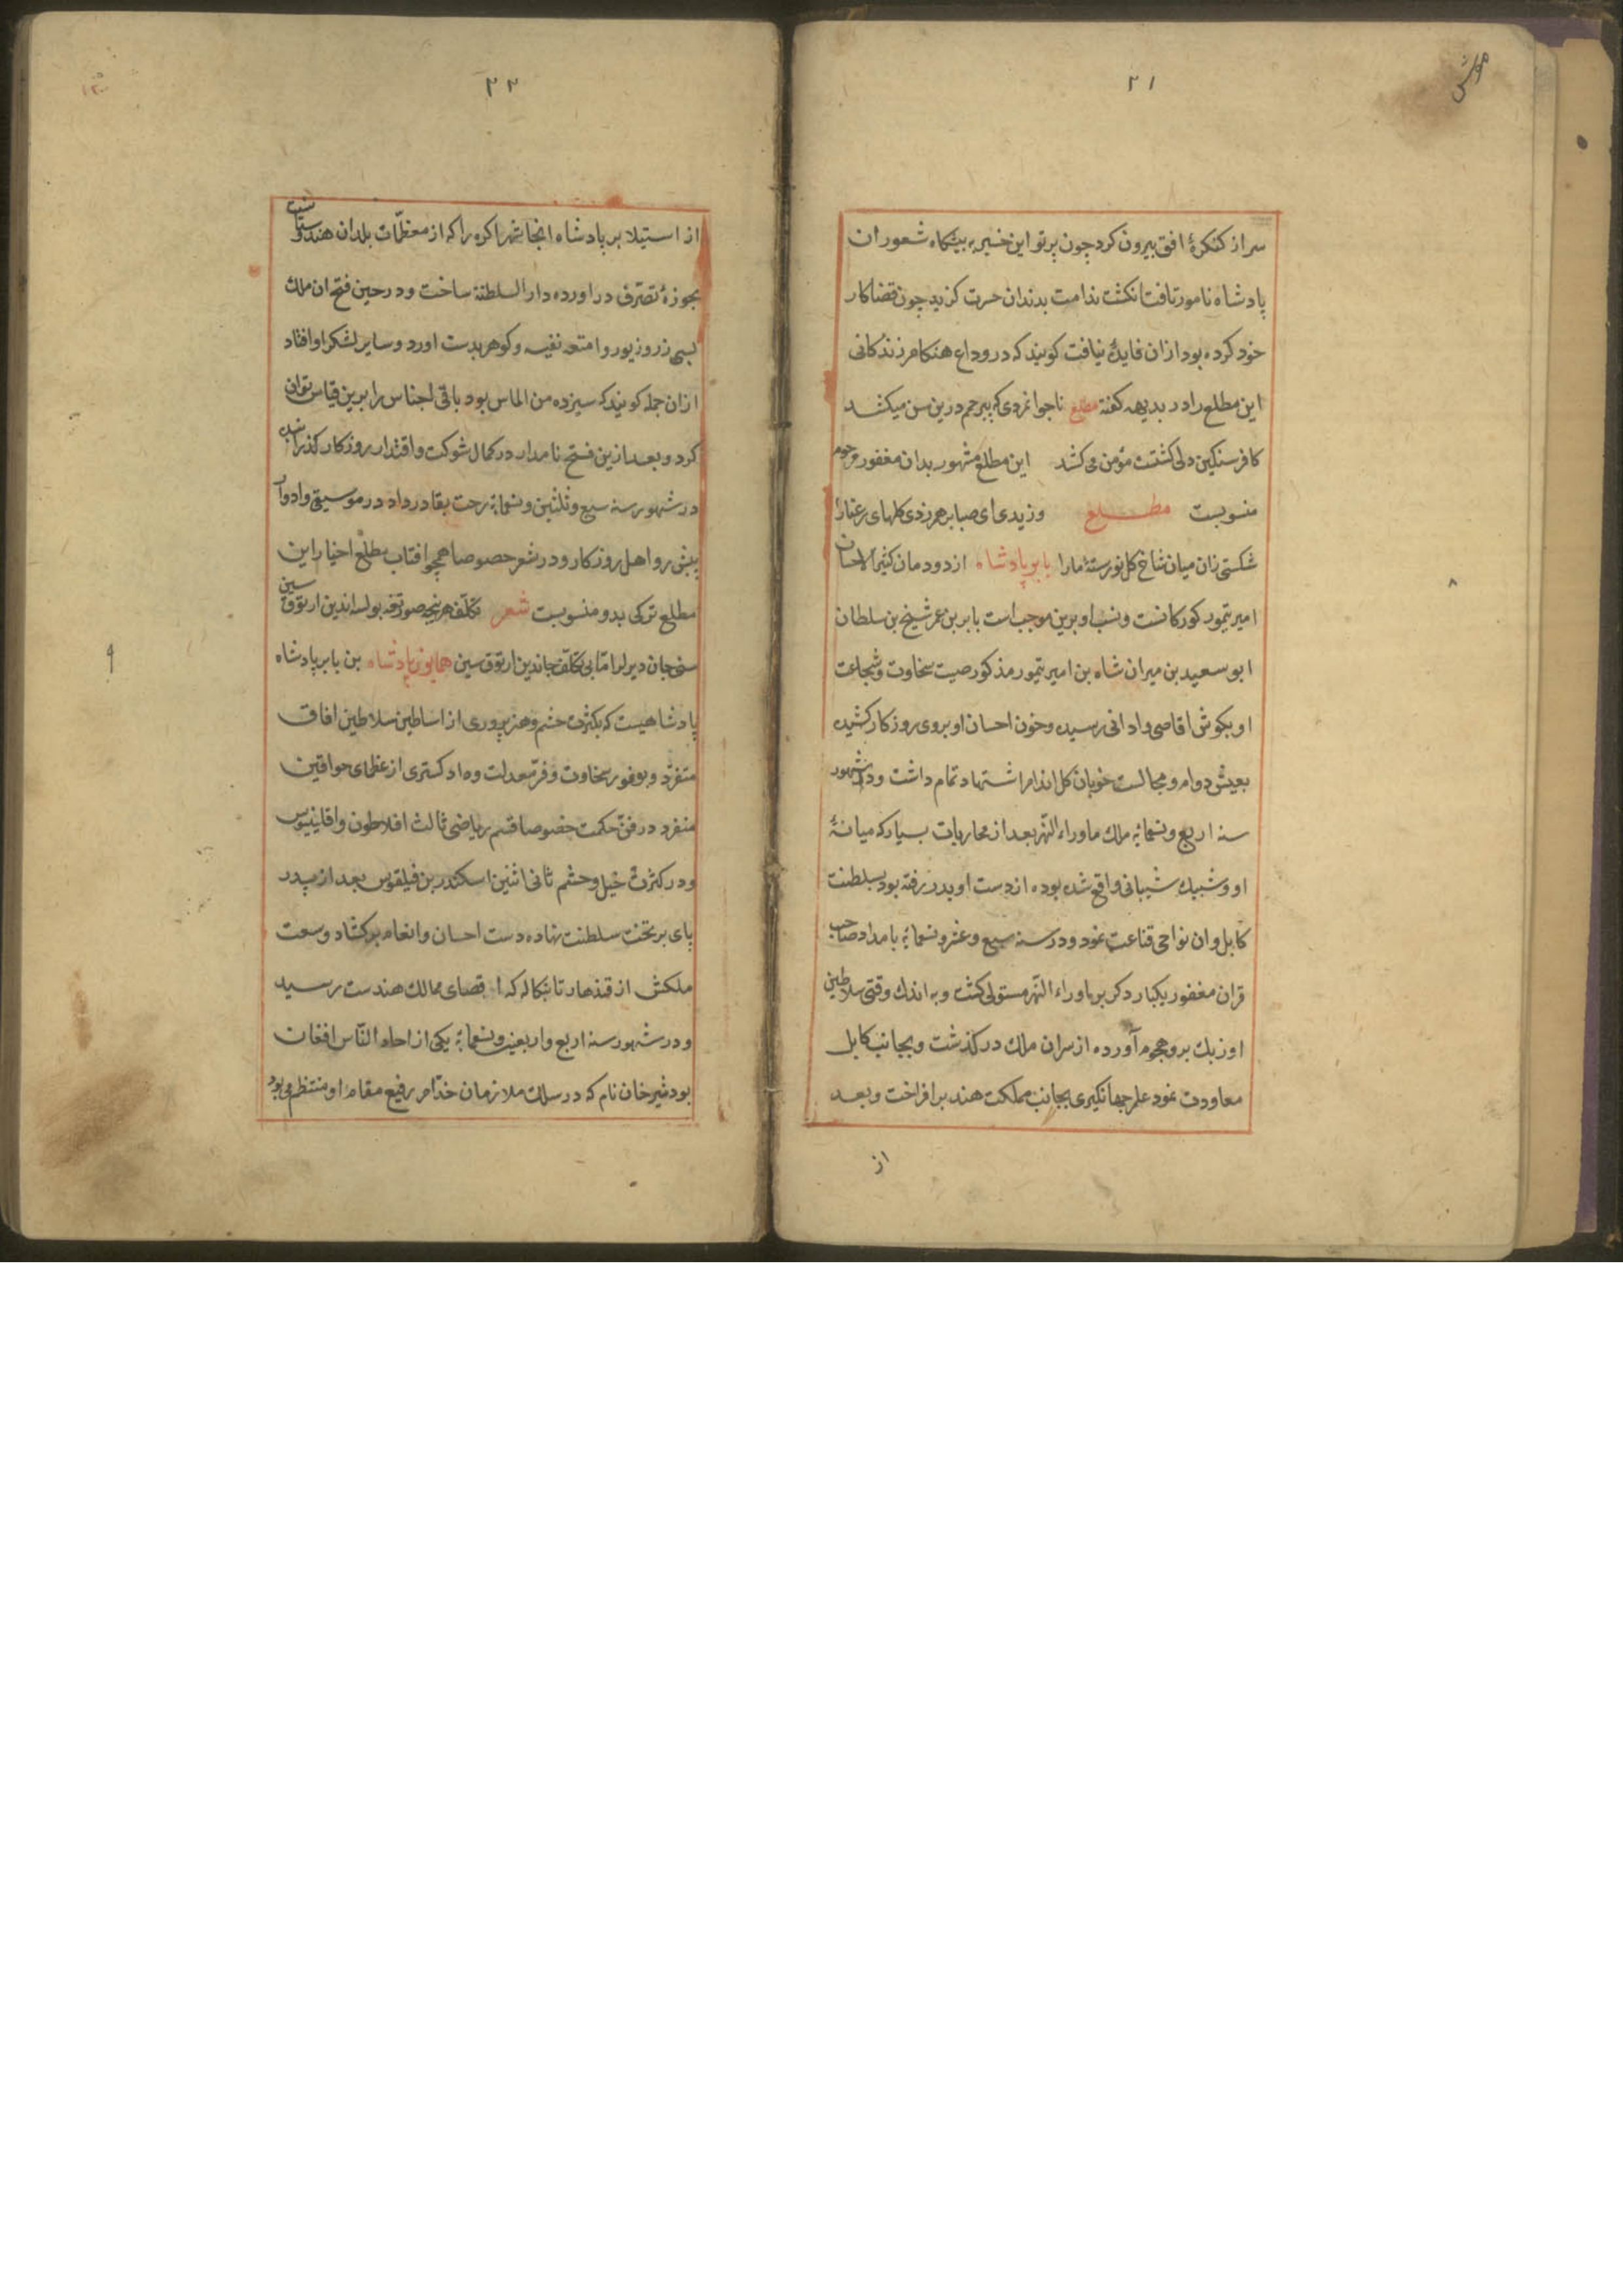 ۲۱
سر از کنکرهٔ افق بیرون کرد چون پرتو این خبر به پیشگاه شعور ان
پادشاه نامور تافت انکشت ندامت بدندان حسرت کزید چون قضا کار
خود کرده بود ازان فایده نیافت کویند که در وداع هنکام زندکانی
این مطلع را در بدیهه کفته مطلع ناجوانمردی که بیرحم درین سن میکشد
کافر سنکین دلی کشتست مؤمن می کشد این مطلع مشهور بدان مغفور مرحوم
منسوبست مطلع وزیدی ای صبا برهم زدی کلهای رعنا را
شکستی زان میان شاخ کل نورستهٔ ما را بابر پادشاه از دودمان کثیر الاحسان
امیر تیمور کورکانست و نسب او برین موجب است بابر بن عمر شیخ بن سلطان
ابو سعید بن میران شاه بن امیر تیمور مذکور صیت سخاوت و شجاعت
او بکوش اقاصی و ادانی رسیده و خون احسان او بروی روزکار کشیده
بعیش دوام و مجالست خوبان کل اندام اشتهاد تمام داشت و در شهور
سنه اربع و تسعمائه ملک ماوراء النهر بعد از محاربات بسیار که میانهٔ
او و شیبک شیبانی واقع شده بود از دست او بدر رفته بود بسلطنت
کابل و ان نواحی قناعت نمود و در سنه سبع و عشر و تسعمائه بامداد صاحب
قران مغفور یکبار دکر بر ماوراء النهر مستولی کشت و به اندک وقتی سلاطین
اوزبک برو هجوم آورده از سران ملک در کذشت و بجانب کابل
معاودت نمود علم جهانکیری بجانب مملکت هند بر افراخت و بعد
از
۲۲
از استیلا بر پادشاه انجا شهر اکره را که از معظمات بلدان هندوستانست
بحوزهٔ تصرف در اورده دار السلطنة ساخت و در حین فتح ان ملک
بسی زر و زیور و امتعه نفیسه و کوهر بدست اورد و سایر لشکر او افتاد
ازان جمله کویند که سیزده من الماس بود باقی اجناس را برین قیاس توان
کرد و بعد ازین فتح نامدار در کمال شوکت و اقتدار روزکار کذرانیده
در شهور سنه سبع و ثلثین و تسعمائه رخت بقا در داد در موسیقی و ادوار
پیش رو اهل روزکار و در شعر خصوصا همچو افتاب مطلع اخیار این
مطلع ترکی بدو منسوبست شعر تکلف هر نیچه صورتده بولسه اندین ارتوق سین
سنی جان دیرلر اما بی تکلف جاندین ارتوق سین همایون پادشاه بن بابر پادشاه
پادشاهیست که بکثرت حشم و هنر پروری از اساطین سلاطین افاق
متفرد و بوفور سخاوت و فر معدلت و داد کستری از عظمای خواقین
منفرد در فن حکمت خصوصا قسم ریاضی ثالث افلاطون و اقلیدوس
و در کثرت خیل و حشم ثانی اثنین اسکندر بن فیلقوس بعد از پدر
پای بر تخت سلطنت نهاده دست احسان و انعام بر کشاد وسعت
ملکش از قندهار تا بنکاله که اقصای ممالک هندست رسید
و در شهور سنه اربع و اربعین و تسعمائه یکی از احاد الناس افغان
بود شیر خان نام که در سلک ملازمان خدام رفیع مقام او منتظم می بود